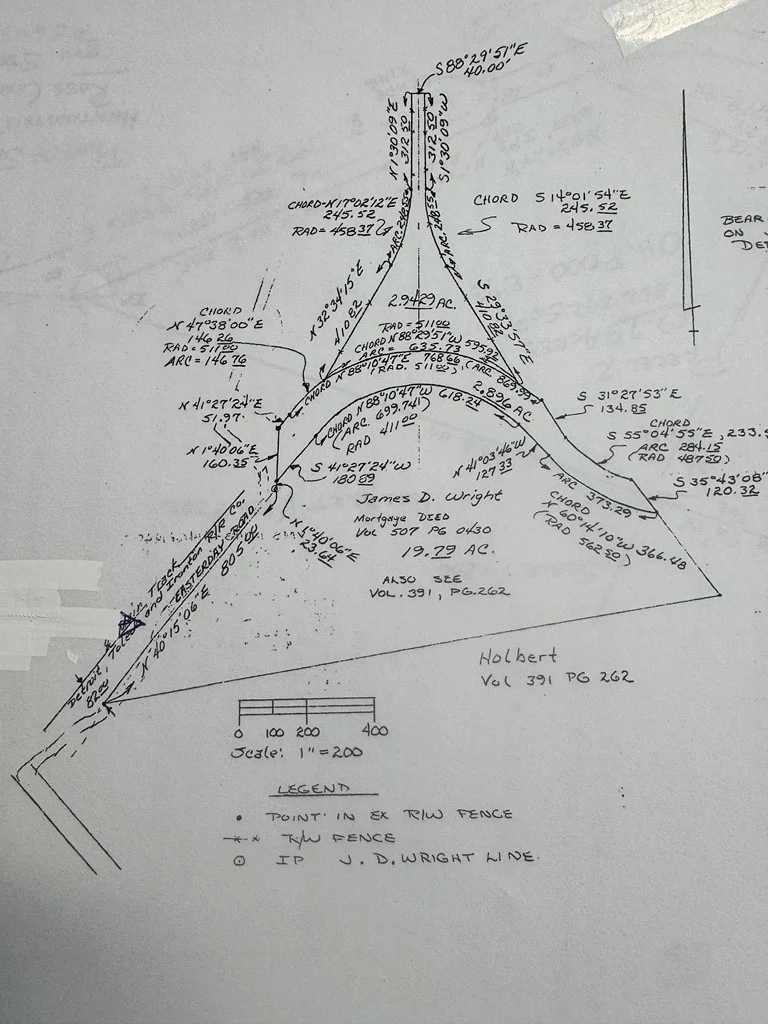 S 88°29'51"E
40.00'
N 1°30'09"E
312.50
S 1°30'09"W
312.50
CHORD-N17°02'12"E
245.52
RAD=458.37
ARC 248.55
ARC 248.55
CHORD S 14°01'54"E
245.52
RAD=458.37
BEAR
ON
DE
N 32°34'15"E
410.82
S 29°33'57"E
410.82
2.9429 AC.
CHORD
N 47°38'00"E
146.26
RAD=511.00
ARC=146.76
RAD=511.00
CHORD N 88°29'51"W 595.92
ARC= 635.73
CHORD N 88°10'47"E 768.66
(RAD. 511.00), (ARC 869.99)
2.896 AC.
CHORD N 88°10'47"W 618.24
(ARC. 699.741)
RAD 411.00
N 41°27'24"E
51.97
N 1°40'06"E
160.35
S 41°27'24"W
180.59
N 41°03'46"W
127.33
S 31°27'53"E
134.85
CHORD
S 55°04'55"E, 233.9
ARC 284.15
(RAD 487.50)
S 35°43'08"
120.32
ARC 373.29
CHORD
N 60°14'10"W 366.48
(RAD 562.50)
N 1°40'06"E
23.64
James D. Wright
Mortgage DEED
Vol 507 PG 0430
19.79 AC.
ALSO SEE
VOL. 391, PG. 262
Track
Detroit, Toledo and Ironton R/R Co.
82.00
EASTERDAY ROAD
N 40°15'06"E 805.00
Holbert
Vol 391 PG 262
0 100 200 400
Scale: 1"=200
LEGEND
• POINT IN EX R/W FENCE
-x-x R/W FENCE
⊙ IP J. D. WRIGHT LINE.